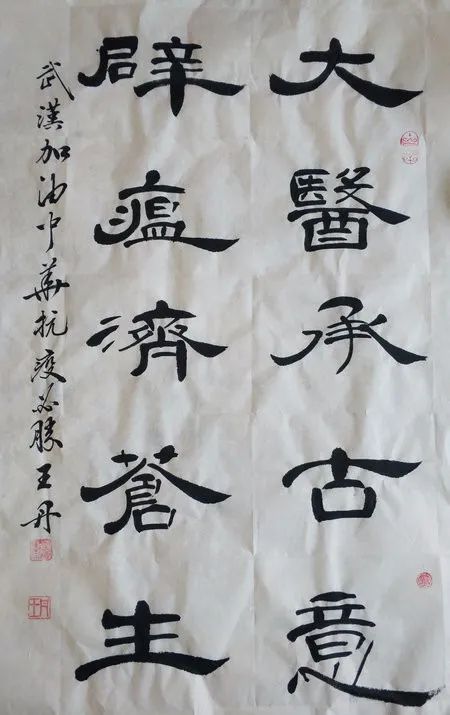 大醫承古意
辟瘟濟蒼生
武漢加油中華抗疫必勝王丹